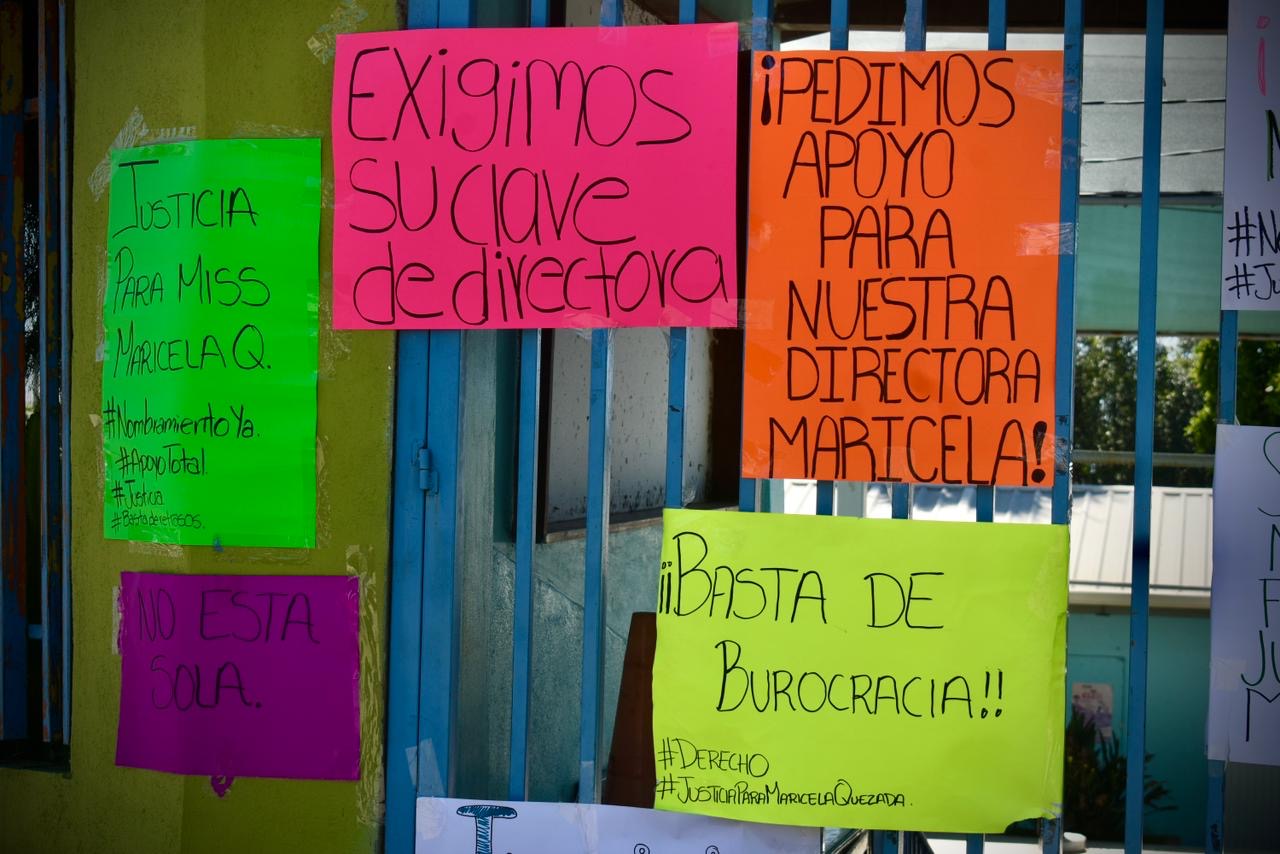 JUSTICIA
PARA MISS
MARICELA Q.
#NombramientoYa.
#ApoyoTotal
#Justicia
#Bastaderetrasos.
NO ESTA
SOLA.
Exigimos
su clave
de directora
¡PEDIMOS
APOYO
PARA
NUESTRA
DIRECTORA
MARICELA!
¡¡BASTA DE
BUROCRACIA!!
#DERECHO
#JUSTICIAPARAMARICELAQUEZADA.